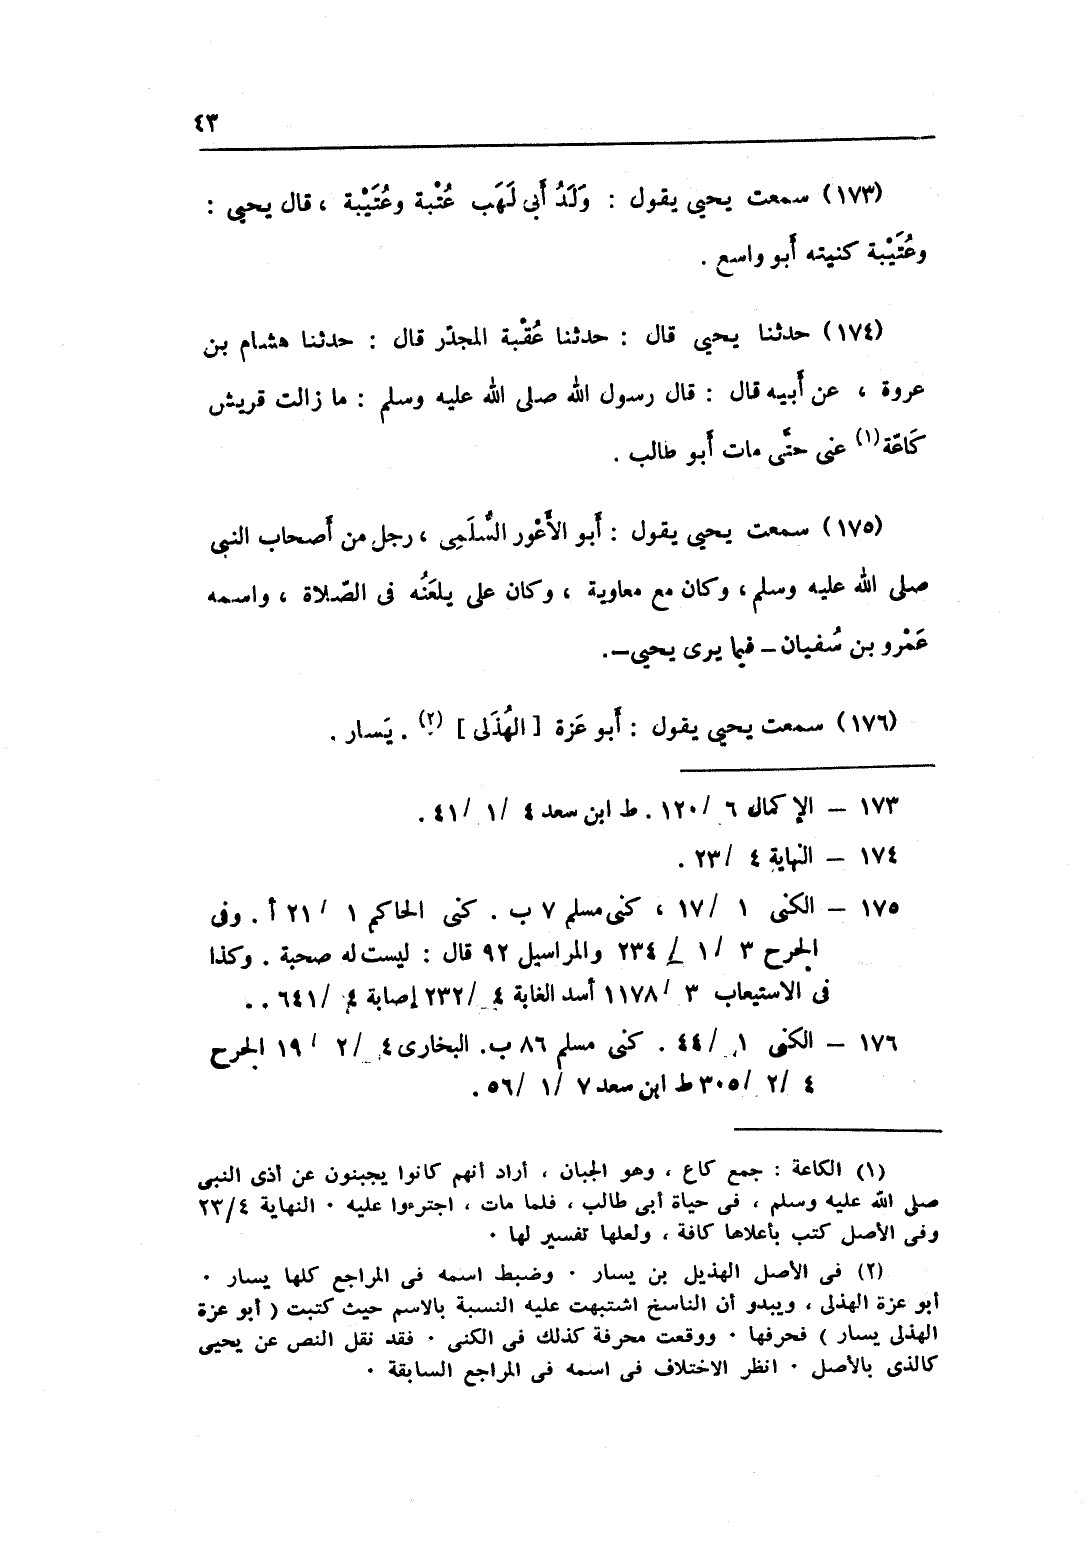 ٤٣
(١٧٣) سمعت يحيى يقول : وَلَدُ أَبى لَهَب عُتْبة وعُتَيْبة ، قال يحيى :
وعُتَيْبة كنيته أَبو واسع .
(١٧٤) حدثنا يحيى قال : حدثنا عُقْبة المجدّر قال : حدثنا هشام بن
عروة ، عن أَبيه قال : قال رسول الله صلى الله عليه وسلم : ما زالت قريش
كَاعّة (١) عنى حتَّى مات أَبو طالب .
(١٧٥) سمعت يحيى يقول : أَبو الأَعْور السُّلَمِى ، رجل من أَصحاب النبى
صلى الله عليه وسلم ، وكان مع معاوية ، وكان على يلعَنُه فى الصّلاة ، واسمه
عَمْرو بن سُفيان ــ فيما يرى يحيى ــ.
(١٧٦) سمعت يحيى يقول : أَبو عَزة [ الهُذَلى ] (٢) . يَسار .
١٧٣ ــ الإكمال ٦ / ١٢٠ . ط ابن سعد ٤ / ١ / ٤١ .
١٧٤ ــ النهاية ٤ / ٢٣ .
١٧٥ ــ الكنى ١ / ١٧ ، كنى مسلم ٧ ب . كنى الحاكم ١ / ٢١ أ . وفى
الجرح ٣ / ١ / ٢٣٤ والمراسيل ٩٢ قال : ليست له صحبة . وكذا
فى الاستيعاب ٣ / ١١٧٨ أسد الغابة ٤ / ٢٣٢ إصابة ٤ / ٦٤١ . .
١٧٦ ــ الكنى ١ / ٤٤ . كنى مسلم ٨٦ ب. البخارى ٤ / ٢ / ١٩ الجرح
٤ / ٢ / ٣٠٥ ط ابن سعد ٧ / ١ / ٥٦ .
(١) الكاعة : جمع كاع ، وهو الجبان ، أراد أنهم كانوا يجبنون عن أذى النبى
صلى الله عليه وسلم ، فى حياة أبى طالب ، فلما مات ، اجترءوا عليه . النهاية ٢٣/٤
وفى الأصل كتب بأعلاها كافة ، ولعلها تفسير لها .
(٢) فى الأصل الهذيل بن يسار . وضبط اسمه فى المراجع كلها يسار .
أبو عزة الهذلى ، ويبدو أن الناسخ اشتبهت عليه النسبة بالاسم حيث كتبت ( أبو عزة
الهذلى يسار ) فحرفها . ووقعت محرفة كذلك فى الكنى . فقد نقل النص عن يحيى
كالذى بالأصل . انظر الاختلاف فى اسمه فى المراجع السابقة .